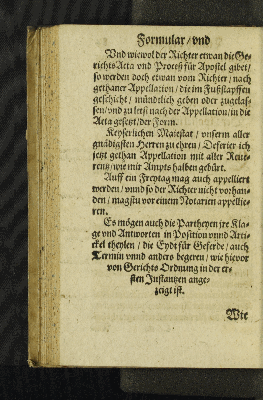 Formular / vnd
Vnd wiewol der Richter etwan die Ge-
richts Acta vnd Proceß für Apostel gibet /
so werden doch etwan vom Richter / nach
gethaner Appellation / die im Fußstapffen
geschicht / mündtlich geben oder zugelas-
sen / vnd zu letst nach der Appellation / in die
Acta gesetzt / der Form.
Keyserlichen Maiestat / vnserm aller
gnädigsten Herren zu ehren / Deferier ich
jetzt gethan Appellation mit aller Reue-
rentz / wie mir Ampts halben gebürt.
Auff ein Freytag mag auch appelliert
werden / vnnd so der Richter nicht vorhan-
den / mag sin vor einem Notarien appellie-
ren.
Es mögen auch die Partheyen jre Kla-
ge vnd Antworten in Position vnnd Arti-
ckel theylen / die Eydt für Geferde / auch
Termin vnnd anders begeren / wie hievor
von Gerichts Ordnung in der er-
sten Justantzen ange-
zeigt ist.
Wie